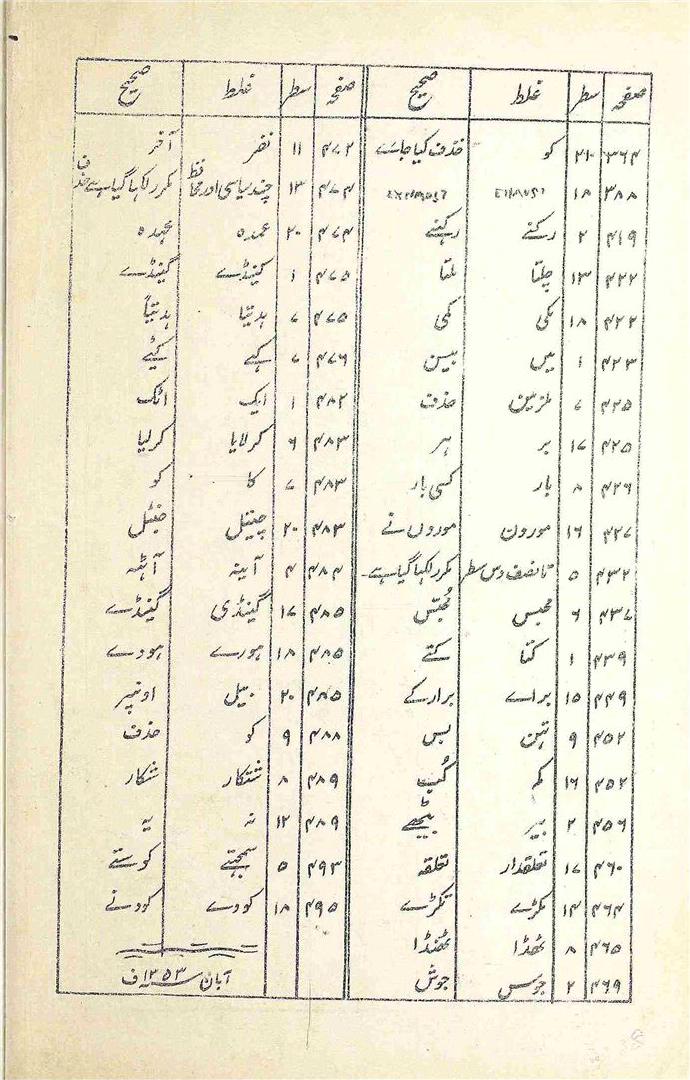 صفحہ سطر غلط صحیح صفحہ سطر غلط صحیح
۳۶۴ ۲۱۰ کو حذف کیا جاے ۴۷۲ ۱۱ نفر آخر
۳۸۸ ۱۸ ۴۷۴ ۱۳ چند سیاسی اور محافظ مکرر لکہا گیا ہے حذف
۴۱۹ ۲ رکنے رہکنے ۴۷۴ ۲۰ عمدہ عہدہ
۴۲۲ ۱۳ چلتا ملتا ۴۷۵ ۱ کینڈے گینڈے
۴۲۲ ۱۸ کی کمی ۴۷۵ ۷ ہدیتا ہدیتاً
۴۲۳ ۱ میں بین ۴۷۶ ۷ کہے کیے
۴۲۵ ۷ ملزمین حذف ۴۸۲ ۱ ایک اٹک
۴۲۵ ۱۷ بر ہر ۴۸۳ ۶ کرلایا کرلیا
۴۲۶ ۸ بار کسی بار ۴۸۳ ۷ کا کو
۴۲۷ ۱۶ مورون موروں نے ۴۸۳ ۲۰ چیتل
۴۳۲ ۵ تا نصف دس سطر مکرر لکہا گیا ہے ۴۸۴ ۴
۴۳۷ ۶ محبس ۴۸۵ ۱۷ گینڈی گینڈے
۴۳۹ ۱ کتا کتے ۴۸۵ ۱۸ ہورے ہووے
۴۴۹ ۱۵ براے برار کے ۴۸۵ ۲۰ بیل اونپر
۴۵۲ ۹ تین بس ۴۸۸ ۹ کو حذف
۴۵۲ ۱۶ کہ کُب ۴۸۹ ۸ شتکار شکار
۴۵۶ ۲ بیر بیٹھے ۴۸۹ ۱۲ نہ یہ
۴۶۰ ۱۷ تعلقدار تعلقہ ۴۹۳ ۵ سمجتے کوستے
۴۶۴ ۱۴ مکڑے ٹکڑے ۴۹۵ ۱۸ کودے کودنے
۴۶۵ ۸ ٹھڈا ٹھنڈا
۴۶۹ ۲ جوس جوش آبان سنہ ۱۲۵۳ ف